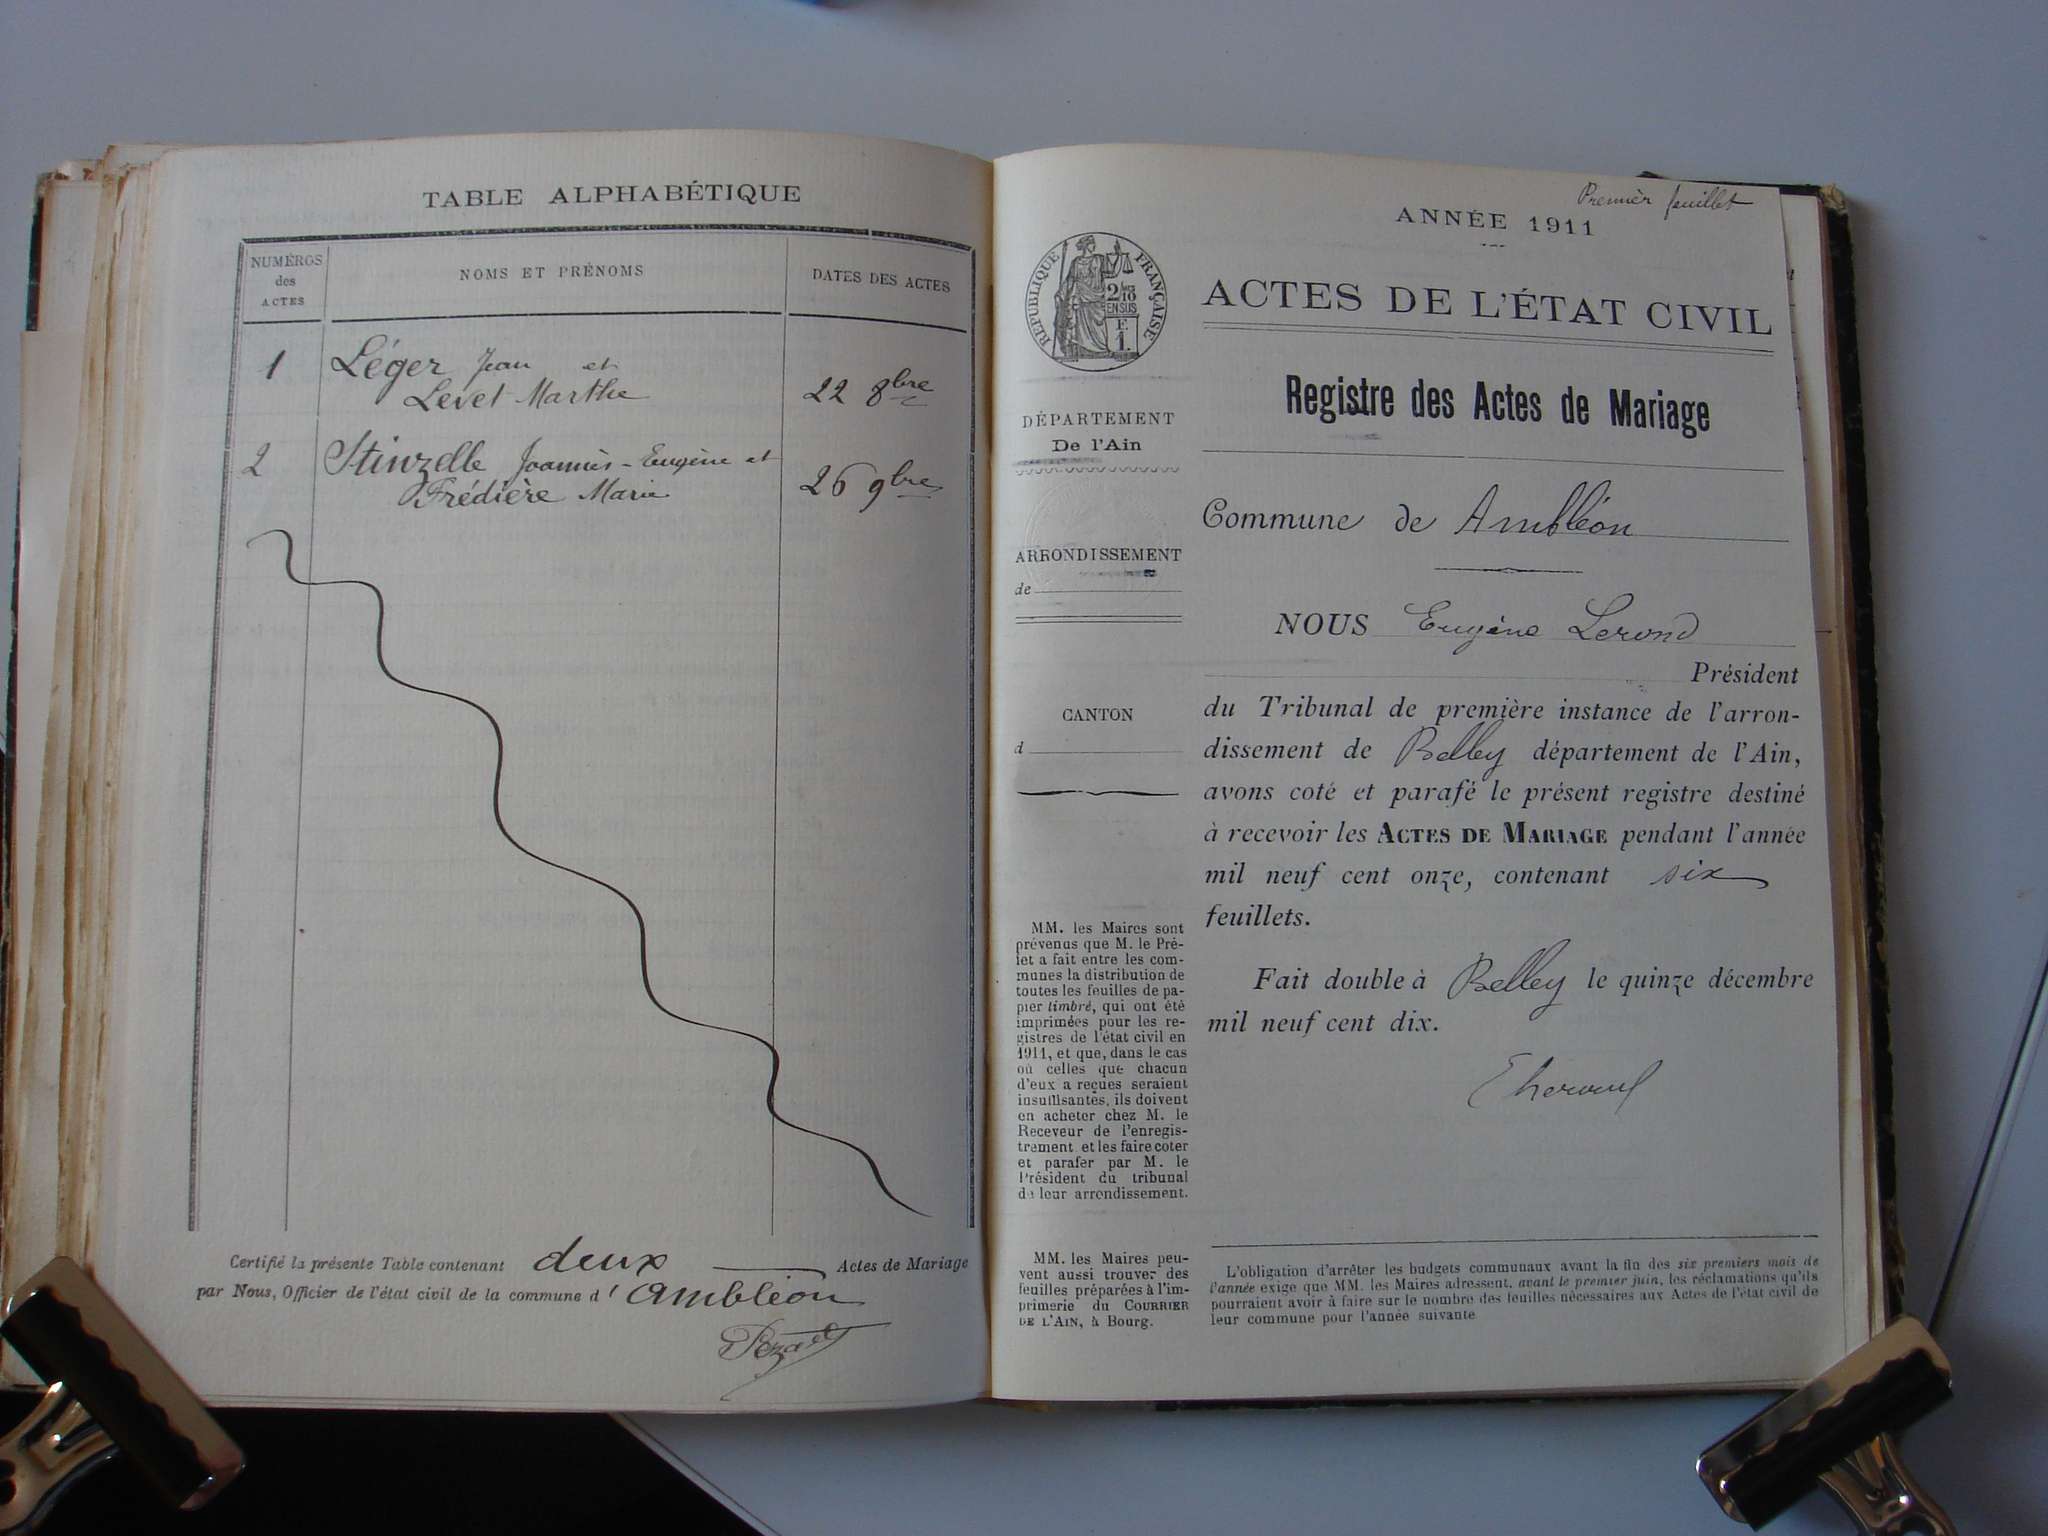 TABLE ALPHABÉTIQUE
NUMÉROS
des
ACTES
NOMS ET PRÉNOMS
DATES DES ACTES
1
Léger Jean et
Levet Marthe
22 8bre
2
Stinzelle Joannès-Eugène et
Frédière Marie
26 9bre
Certifié la présente Table contenant deux Actes de Mariage
par Nous, Officier de l'état civil de la commune d' Ambléon
Premier feuillet
ANNÉE 1911
RÉPUBLIQUE FRANÇAISE
2/10
EN SUS
F.
1.
ACTES DE L'ÉTAT CIVIL
Registre des Actes de Mariage
DÉPARTEMENT
De l'Ain
ARRONDISSEMENT
de
CANTON
d
MM. les Maires sont
prévenus que M. le Pré-
fet a fait entre les com-
munes la distribution de
toutes les feuilles de pa-
pier timbré, qui ont été
imprimées pour les re-
gistres de l'état civil en
1911, et que, dans le cas
où celles que chacun
d'eux a reçues seraient
insuffisantes, ils doivent
en acheter chez M. le
Receveur de l'enregis-
trement et les faire coter
et parafer par M. le
Président du tribunal
de leur arrondissement.
MM. les Maires peu-
vent aussi trouver des
feuilles préparées à l'im-
primerie du COURRIER
DE L'AIN, à Bourg.
Commune de Ambléon
NOUS Eugène Lerond
Président
du Tribunal de première instance de l'arron-
dissement de Belley département de l'Ain,
avons coté et parafé le présent registre destiné
à recevoir les ACTES DE MARIAGE pendant l'année
mil neuf cent onze, contenant six
feuillets.
Fait double à Belley le quinze décembre
mil neuf cent dix.
L'obligation d'arrêter les budgets communaux avant la fin des six premiers mois de
l'année exige que MM. les Maires adressent, avant le premier juin, les réclamations qu'ils
pourraient avoir à faire sur le nombre des feuilles nécessaires aux Actes de l'état civil de
leur commune pour l'année suivante